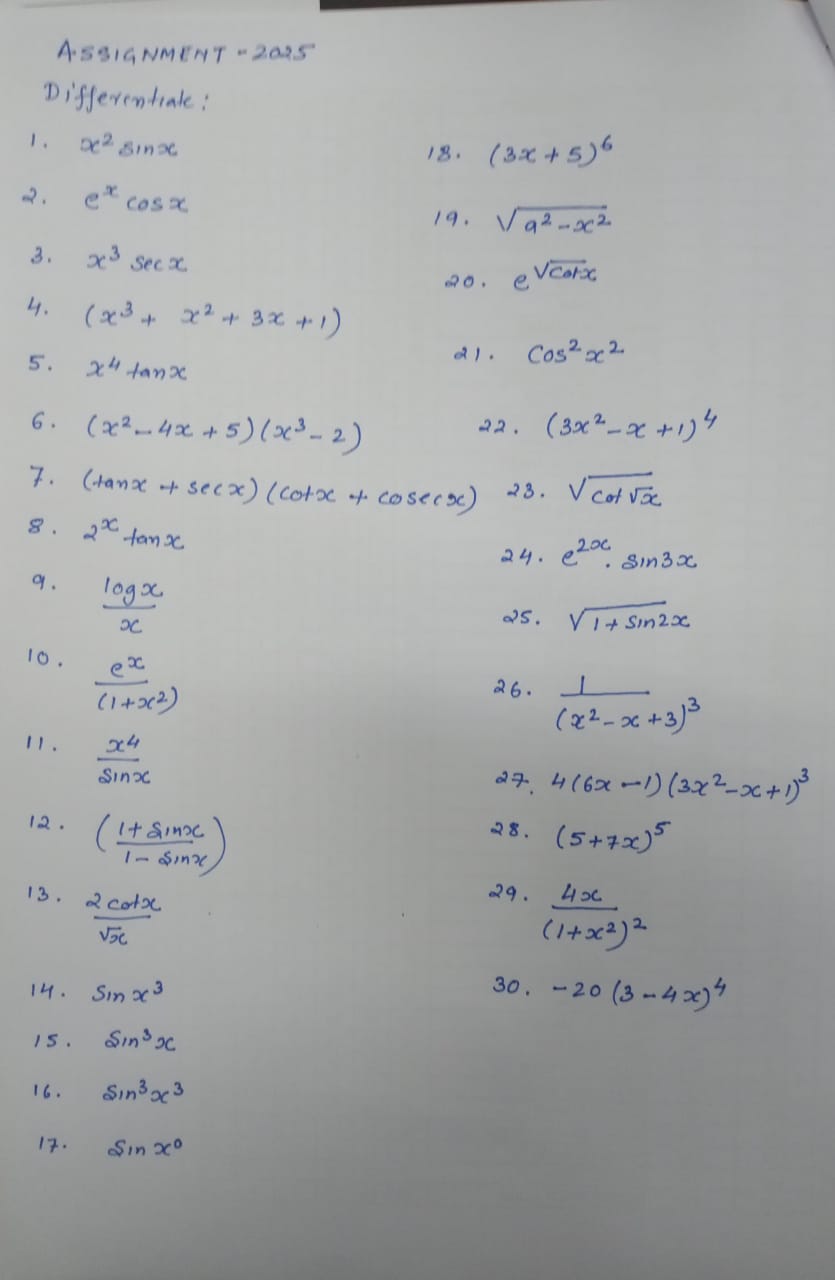 ASSIGNMENT - 2025
Differentiate :
1. x² sinx
2. eˣ cosx
3. x³ secx
4. (x³ + x² + 3x + 1)
5. x⁴ tanx
6. (x² - 4x + 5)(x³ - 2)
7. (tanx + secx)(cotx + cosecx)
8. 2ˣ tanx
9. logx / x
10. eˣ / (1+x²)
11. x⁴ / sinx
12. (1+sinx / 1-sinx)
13. 2cotx / √x
14. Sin x³
15. Sin³x
16. Sin³x³
17. Sin x⁰
18. (3x + 5)⁶
19. √(a² - x²)
20. e^√cotx
21. Cos²x²
22. (3x² - x + 1)⁴
23. √(cot √x)
24. e²ˣ. sin3x
25. √(1 + sin2x)
26. 1 / (x² - x + 3)³
27. 4(6x - 1)(3x² - x + 1)³
28. (5+7x)⁵
29. 4x / (1+x²)²
30. -20 (3 - 4x)⁴